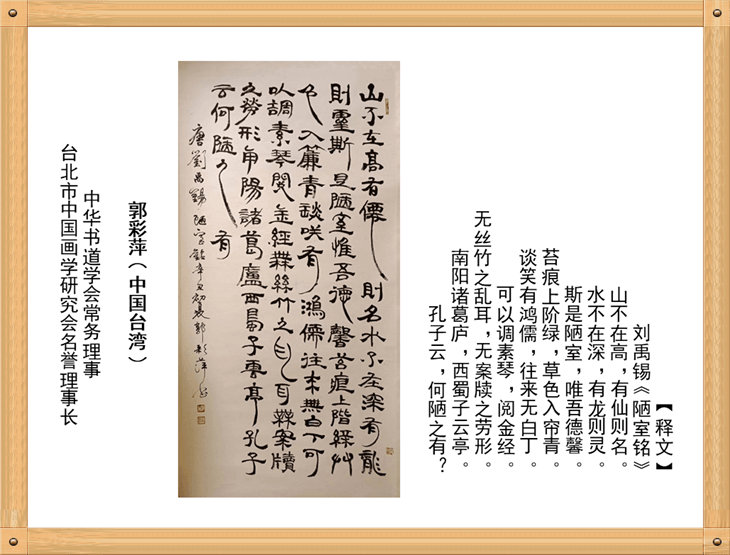 【释文】
刘禹锡《陋室铭》
山不在高，有仙则名。
水不在深，有龙则灵。
斯是陋室，唯吾德馨。
苔痕上阶绿，草色入帘青。
谈笑有鸿儒，往来无白丁。
可以调素琴，阅金经。
无丝竹之乱耳，无案牍之劳形。
南阳诸葛庐，西蜀子云亭。
孔子云，何陋之有？
山不在高有僊則名水不在深有龍
則靈斯是陋室惟吾德馨苔痕上階綠艸
色入簾青談咲有鴻儒往來無白丁可
以調素琴閱金經無絲竹之乱耳無案牘
之勞形南陽諸葛廬西蜀子雲亭孔子
云何陋之有
唐劉禹錫陋室銘辛丑初夏郭彩萍
郭彩萍（中国台湾）
中华书道学会常务理事
台北市中国画学研究会名誉理事长